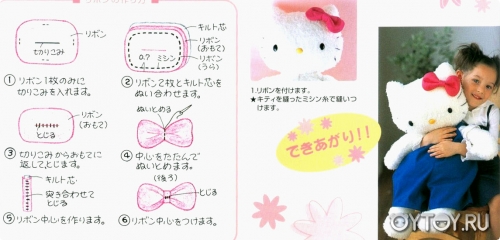 リボンの作り方
リボン
切りこみ
①リボン1枚のみに
切りこみを入れます。
キルト芯
リボン
(おもて)
0.7 ミシン
リボン
(うら)
②リボン2枚とキルト芯を
ぬい合わせます。
リボン
(おもて)
とじる
③切りこみからおもてに
返してとじます。
ぬいとめる
④中心をたたんで
ぬいとめます。
キルト芯
突き合わせて
とじる
⑤リボン中心を作ります。
(後ろ)
とじる
⑥リボン中心をつけます。
1.リボンを付けます。
★キティを縫ったミシン糸で縫いつ
けます。
できあがり!!
OYTOY.RU